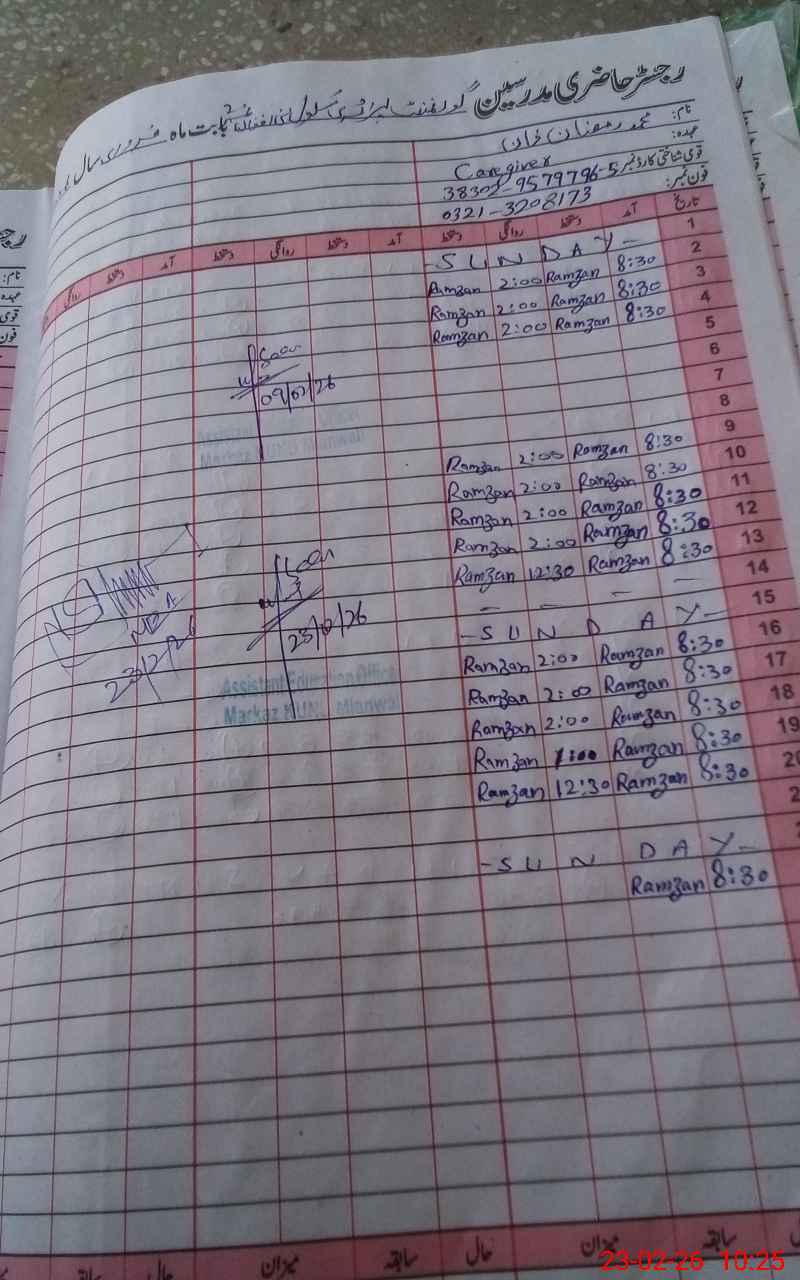 رجسٹر حاضری مدرسین گورنمنٹ
بابت ماہ فروری سال
نام: محمد رمضان خان
عہدہ: Caregiver
قومی شناختی کارڈ نمبر 38302-9579796-5
فون نمبر: 0321-3208173
تاریخ آمد دستخط روانگی دستخط آمد دستخط روانگی دستخط آمد دستخط روانگی
1 -SUNDAY-
2 8:30 Ramzan 2:00 Ramzan
3 8:30 Ramzan 2:00 Ramzan
4 8:30 Ramzan 2:00 Ramzan
5
6
7
8
9 8:30 Ramzan 2:00 Ramzan
10 8:30 Ramzan 2:00 Ramzan
11 8:30 Ramzan 2:00 Ramzan
12 8:30 Ramzan 2:00 Ramzan
13 8:30 Ramzan 12:30 Ramzan
14 - - - -
15 -SUNDAY-
16 8:30 Ramzan 2:00 Ramzan
17 8:30 Ramzan 2:00 Ramzan
18 8:30 Ramzan 2:00 Ramzan
19 8:30 Ramzan 1:00 Ramzan
20 8:30 Ramzan 12:30 Ramzan
2
-SUNDAY-
8:30 Ramzan
09/02/26
Assistant
Markaz
23/02/26
Assistant Education Officer
Markaz
23/2/26
سابقہ میزان حال سابقہ میزان حال سابقہ
نام:
عہدہ:
قومی
فون
روانگی
23-02-26 10:25